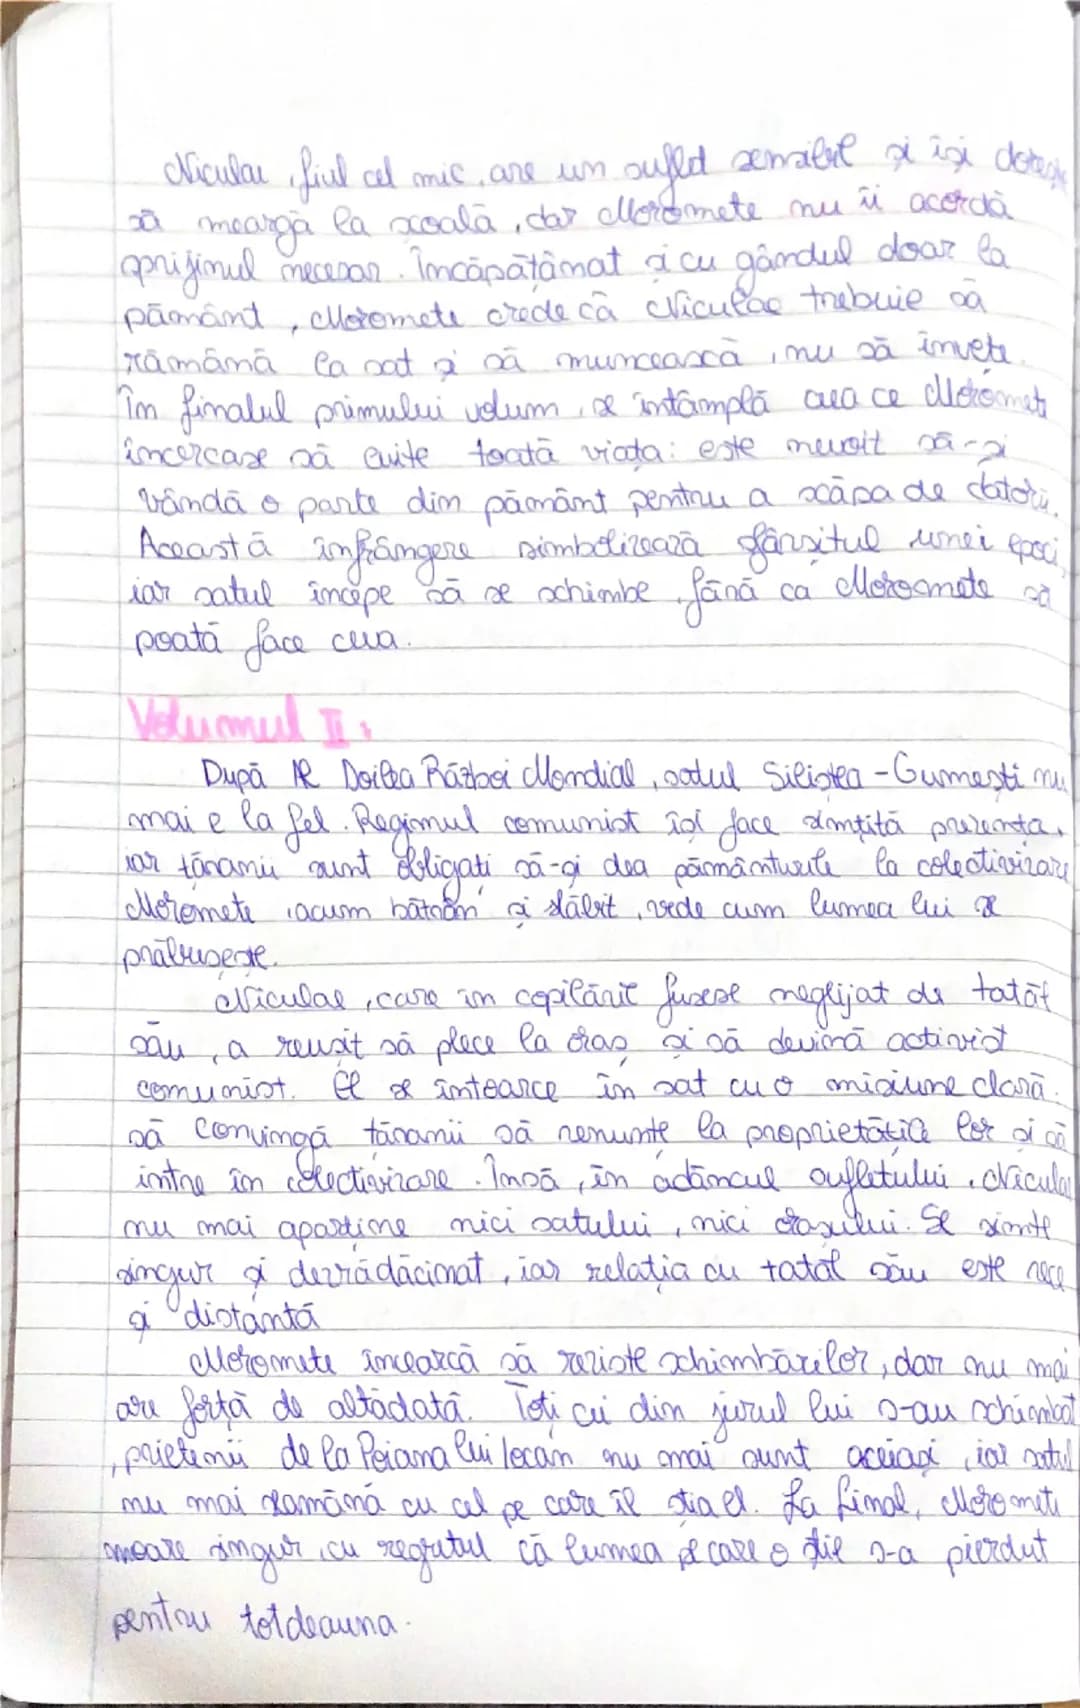 Niculae, fiul cel mic, are un suflet sensibil și își dorește
să meargă la școală, dar Moromete nu îi acordă
sprijinul necesar. Încăpățânat și cu gândul doar la
pământ, Moromete crede că Niculae trebuie să
rămână la sat și să muncească, nu să învețe.
În finalul primului volum, se întâmplă ceea ce Moromete
încercase să evite toată viața: este nevoit să-și
vândă o parte din pământ pentru a scăpa de datorii.
Această înfrângere simbolizează sfârșitul unei epoci,
iar satul începe să se schimbe, fără ca Moromete să
poată face ceva.
Volumul II:
După Al Doilea Război Mondial, satul Siliștea-Gumești nu
mai e la fel. Regimul comunist își face simțită prezența,
iar țăranii sunt obligați să-și dea pământurile la colectivizare
Moromete, acum bătrân și slăbit, vede cum lumea lui se
prăbușește.
Niculae, care în copilărie fusese neglijat de tatăl
său, a reușit să plece la oraș și să devină activist
comunist. El se întoarce în sat cu o misiune clară:
să convingă țăranii să renunțe la proprietățile lor și să
intre în colectivizare. Însă, în adâncul sufletului, Niculae
nu mai aparține nici satului, nici orașului. Se simte
singur și dezrădăcinat, iar relația cu tatăl său este rece
și distantă
Moromete încearcă să reziste schimbărilor, dar nu mai
are forța de altădată. Toți cei din jurul lui s-au schimbat
, prietenii de la Poiana lui Iocan nu mai sunt aceiași, iar satul
nu mai seamănă cu cel pe care îl știa el. La final, Moromete
moare singur, cu regretul că lumea pe care o știe s-a pierdut
pentru totdeauna.